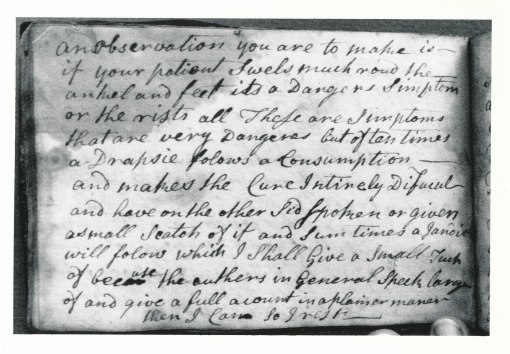 an observation you are to make is —
if your patient Swels much roud the
ankel and feet its a Dangers Simptom
or the rists all These are Simptoms
that are very Dangeres but often times
a Drapsie folows a Consumption —
and makes the Cure Intirely Difucul
and have on the other Sid Spoken or given
a small Scatch of it and Sum times a Jandic
will folow which I Shall Give a Small Tuch
of because the authers in General Speck large
of and give a full acount in a plainer maner
then I Can So I rist —